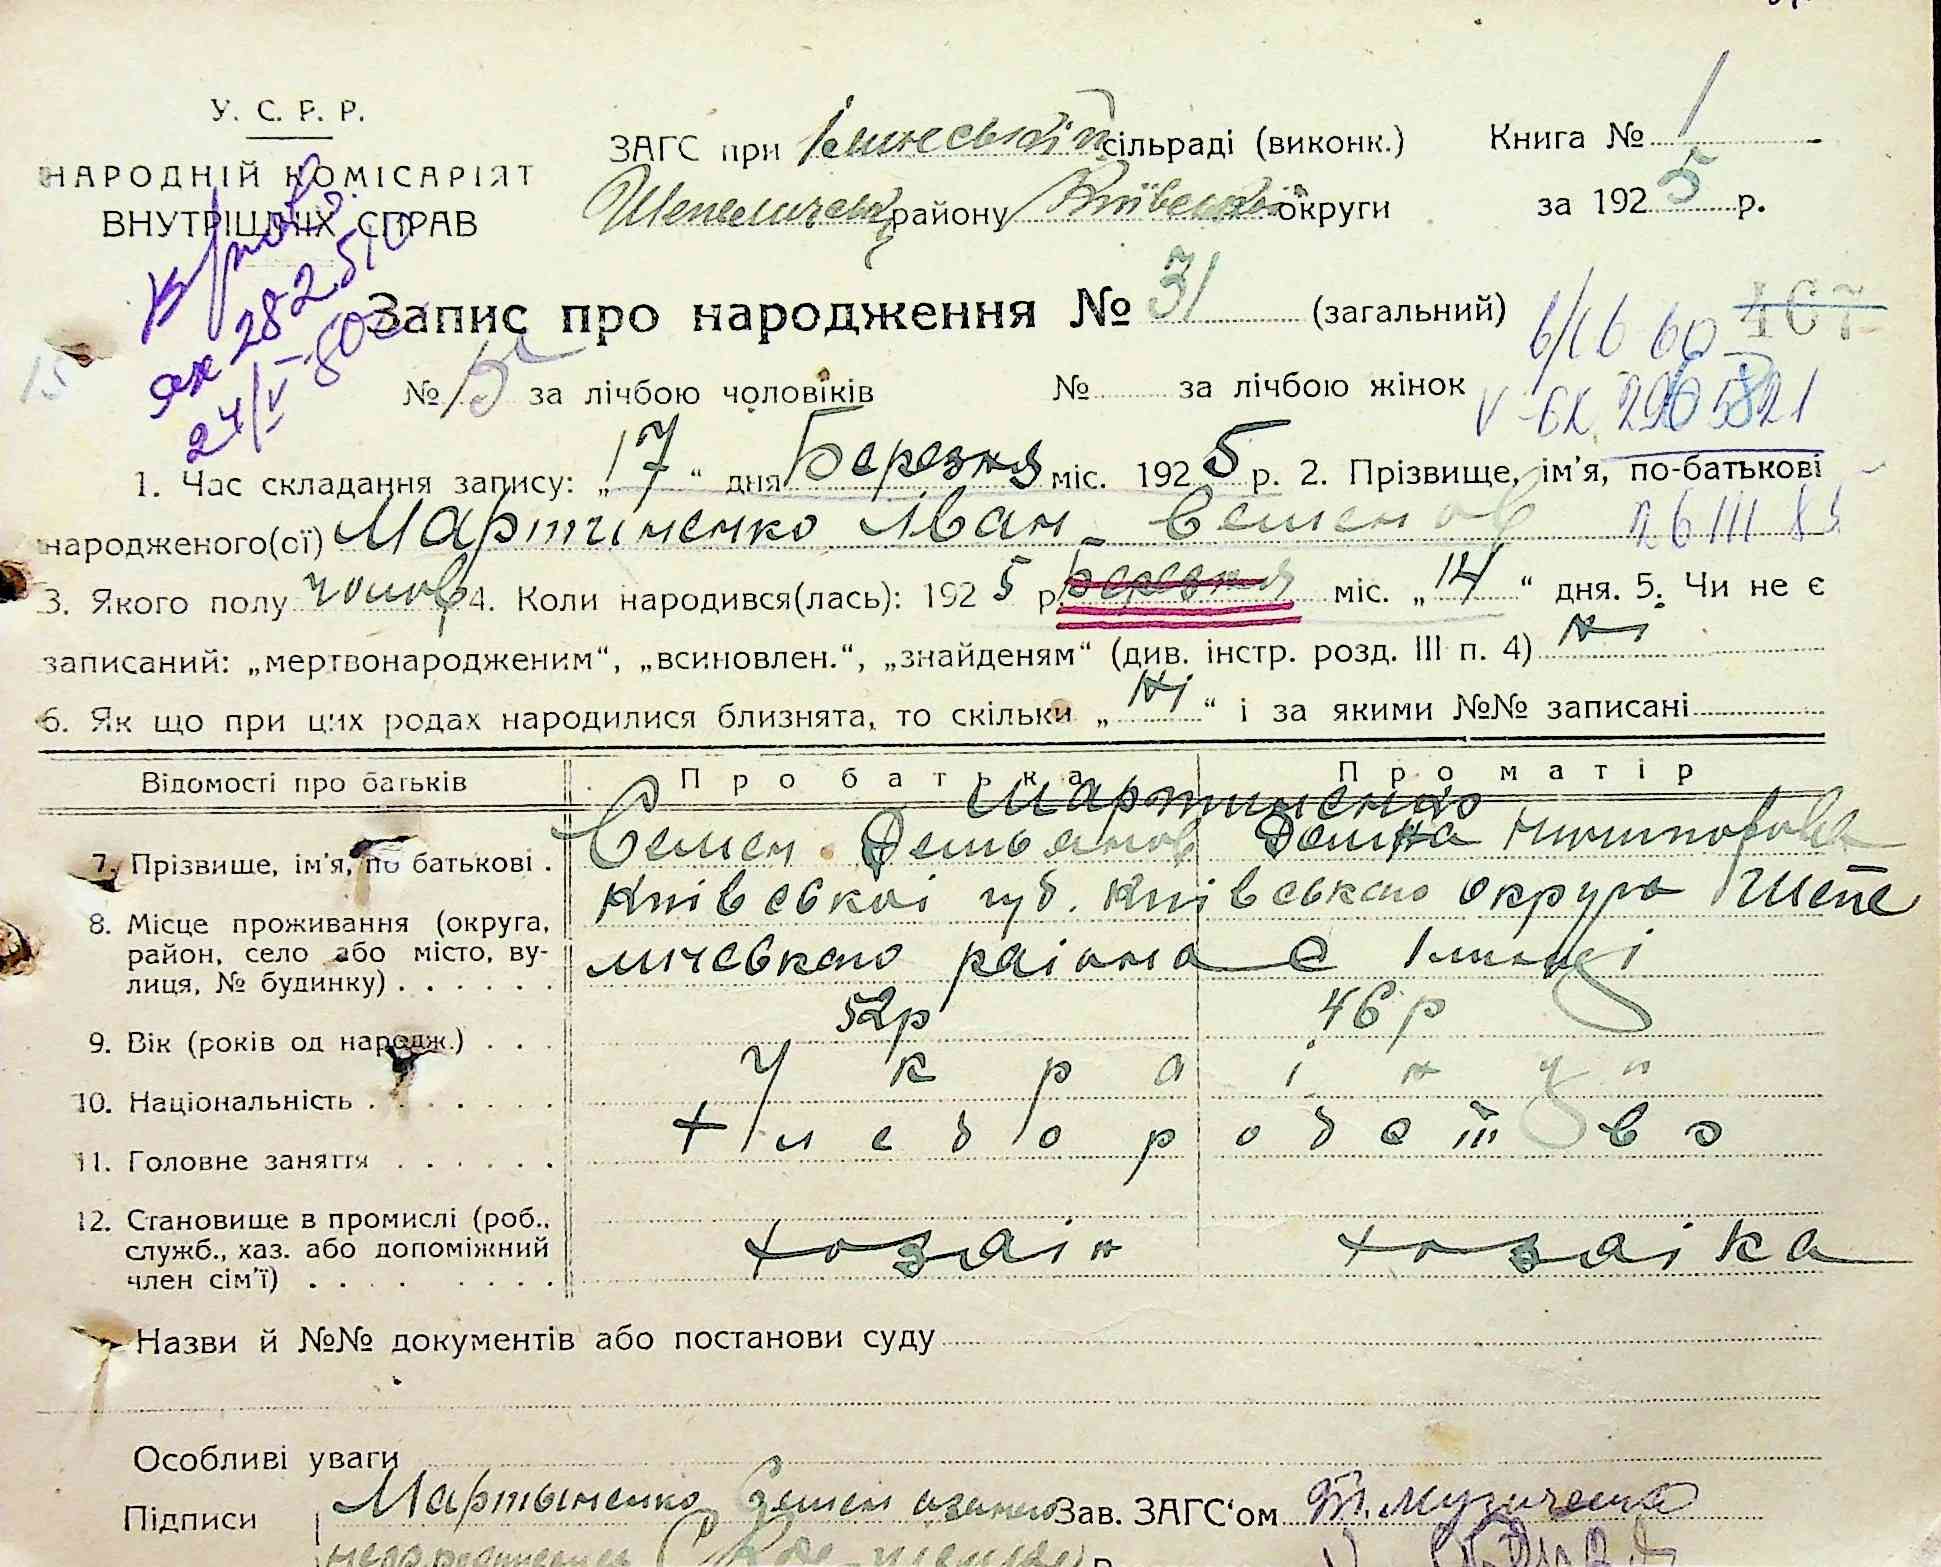 У. С. Р. Р.
НАРОДНІЙ КОМІСАРІЯТ
ВНУТРІШНІХ СПРАВ
ЗАГС при сільраді (виконк.)
району Київської округи
Книга № 1
за 1925 р.
Запис про народження № 31 (загальний)
407
№ 15 за лічбою чоловіків № за лічбою жінок
1. Час складання запису: „17“ дня Березня міс. 1925 р. 2. Прізвище, ім'я, по-батькові
народженого(ої) Мартиненко Іван Семенов
3. Якого полу чолов 4. Коли народився(лась): 1925 р. Березня міс. „14“ дня. 5. Чи не є
записаний: „мертвонародженим“, „всиновлен.“, „знайденям“ (див. інстр. розд. III п. 4) Ні
6. Як що при цих родах народилися близнята, то скільки „Ні“ і за якими №№ записані
Відомості про батьків Про батька Про матір
Мартиненко
7. Прізвище, ім'я, по батькові . Семен Демьянов
8. Місце проживання (округа,
район, село або місто, ву-
лиця, № будинку) . . . . . .
Київської губ. Київського округа Шепе
личевского раіона с
9. Вік (років од народж.) . . . 52р 46р
10. Національність . . . . . . . Україн
11. Головне заняття . . . . . . Хлебородство
12. Становище в промислі (роб.,
служб., хаз. або допоміжний
член сім'ї) . . . . . . . .
хозаін хозаіка
Назви й №№ документів або постанови суду
Особливі уваги
Підписи Мартыненко Семен Зав. ЗАГС'ом